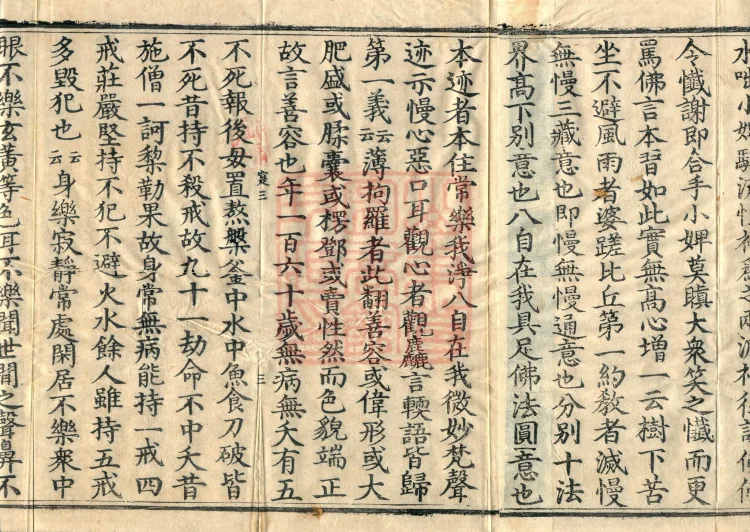 令懴謝即合手小婢莫瞋大衆笑之懴而更
罵佛言本習如此實無髙心增一云樹下苦
坐不避風雨者婆蹉比丘第一約敎者滅慢
無慢三藏意也即慢無慢通意也分别十法
界髙下别意也八自在我具足佛法圓意也
本迹者本住常樂我淨八自在我微妙梵聲
迹示慢心惡口耳觀心者觀麤言輭語皆歸
第一義云云薄拘羅者此翻善容或偉形或大
肥盛或腬囊或楞鄧或賣性然而色貌端正
故言善容也年一百六十歲無病無夭有五
寂三
三
不死報後母置熬槃釜中水中魚食刀破皆
不死昔持不殺戒故九十一劫命不中夭昔
施僧一訶黎勒果故身常無病能持一戒四
戒莊嚴堅持不犯不避火水餘人雖持五戒
多毀犯也云云身樂寂靜常處閑居不樂衆中
眼不樂玄黃等色耳不樂聞世間之聲鼻不